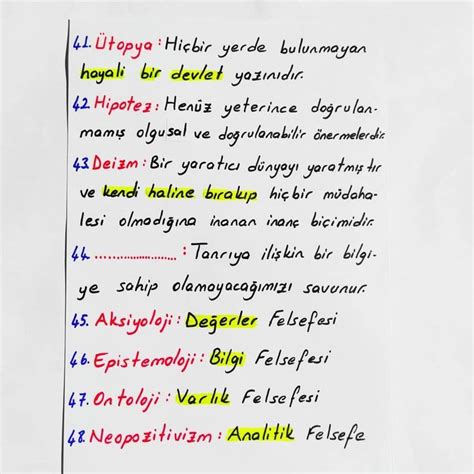 41. Ütopya: Hiçbir yerde bulunmayan
hayali bir devlet yazınıdır.
42. Hipotez: Henüz yeterince doğrulan-
mamış olgusal ve doğrulanabilir önermelerdir.
43. Deizm: Bir yaratıcı dünyayı yaratmıştır
ve kendi haline bırakıp hiçbir müdaha-
lesi olmadığına inanan inanç biçimidir.
44. ......................: Tanrıya ilişkin bir bilgi-
ye sahip olamayacağımızı savunur.
45. Aksiyoloji: Değerler Felsefesi
46. Epistemoloji: Bilgi Felsefesi
47. Ontoloji: Varlık Felsefesi
48. Neopozitivizm: Analitik Felsefe